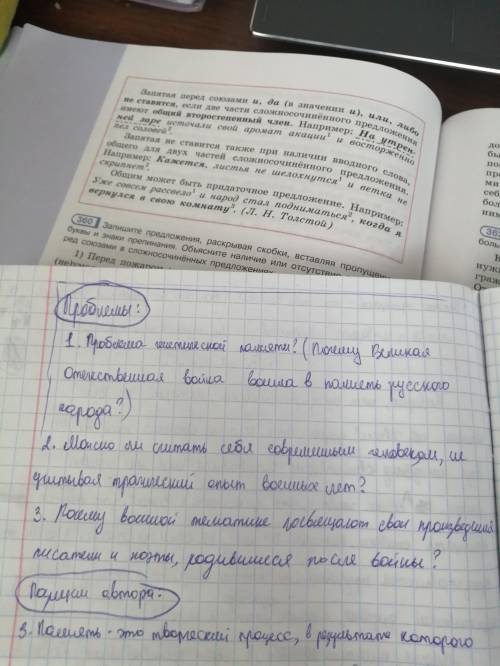 Запятая перед союзами и, да (в значении и), или, либо
не ставится, если две части сложносочинённого предложения
имеют общий второстепенный член. Например: На утрен-
ней заре источали свой аромат акации¹ и восторженно
пел соловей².
Запятая не ставится также при наличии вводного слова,
общего для двух частей сложносочинённого предложения.
Например: Кажется, листья не шелохнутся¹ и ветка не
скрипнет².
Общим может быть придаточное предложение. Например:
Уже совсем рассвело¹ и народ стал подниматься², когда я
вернулся в свою комнату³. (Л. Н. Толстой)
360 Запишите предложения, раскрывая скобки, вставляя пропущен
буквы и знаки препинания. Объясните наличие или отсутствие
ред союзами в сложносочинённых предложениях
1) Перед пожаром
Проблемы:
1. Проблема генетической памяти? (Почему Великая
Отечественная война вошла в память русского
народа?)
2. Можно ли считать себя современным человеком, не
учитывая трагический опыт военных лет?
3. Почему военной тематике посвящают свои произведения
писатели и поэты, родившиеся после войны?
Позиции автора:
3. Память - это творческий процесс, в результате которого